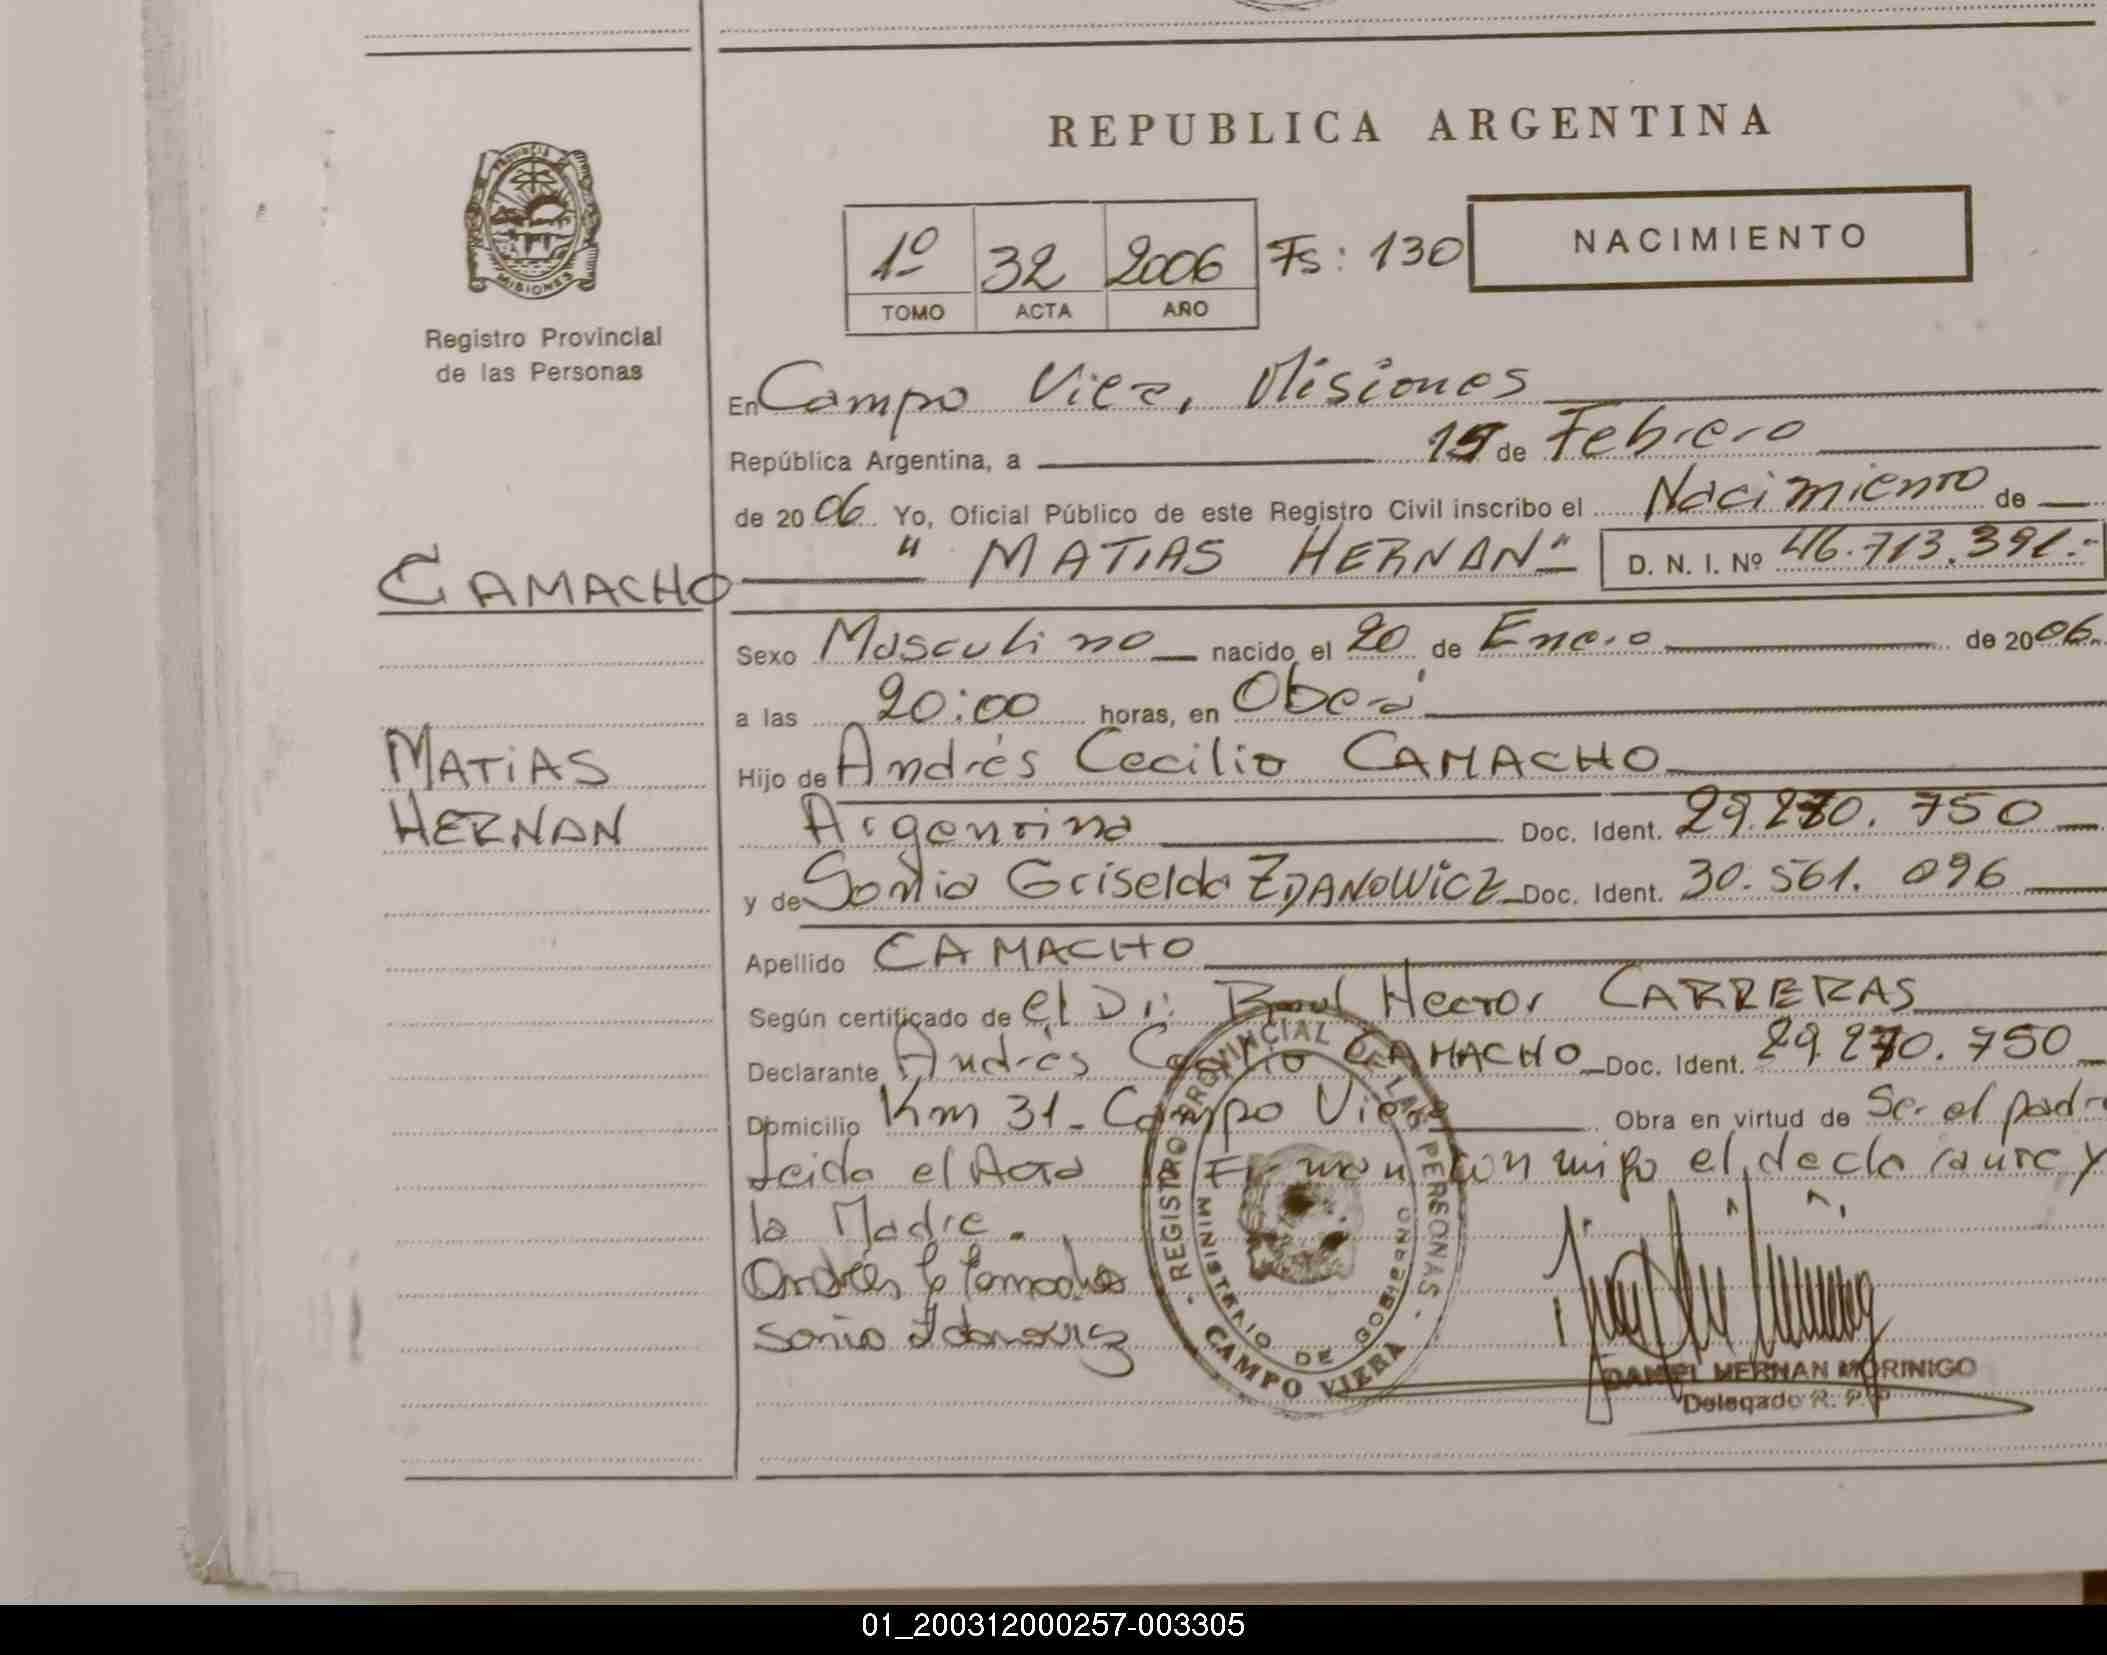 REPUBLICA ARGENTINA
PROVINCIA DE MISIONES
Registro Provincial
de las Personas
1º 32 2006 Fs: 130 NACIMIENTO
TOMO ACTA AÑO
En Campo Viera, Misiones
República Argentina, a 15 de Febrero
de 2006 Yo, Oficial Público de este Registro Civil inscribo el Nacimiento de
CAMACHO " MATIAS HERNAN" D. N. I. Nº 46.713.391.-
Sexo Masculino nacido el 20 de Enero de 2006.
a las 20:00 horas, en Oberá
MATIAS
HERNAN
Hijo de Andrés Cecilio CAMACHO
Argentina Doc. Ident. 29.270.750
y de Sonia Griselda ZDANOWICZ Doc. Ident. 30.561.096
Apellido CAMACHO
Según certificado de el Dr: Raul Hector CARRERAS
Declarante Andrés Cecilio CAMACHO Doc. Ident. 29.270.750
Domicilio Km 31- Campo Viera Obra en virtud de Ser el padre
Leida el Acta la Firman con migo el declarante y
la Madre.
Andrés C Camacho
Sonia Zdanowicz
REGISTRO PROVINCIAL DE LAS PERSONAS
MINISTERIO DE GOBIERNO
CAMPO VIERA
DANIEL HERNAN MORINIGO
Delegado R. P. P
01_200312000257-003305